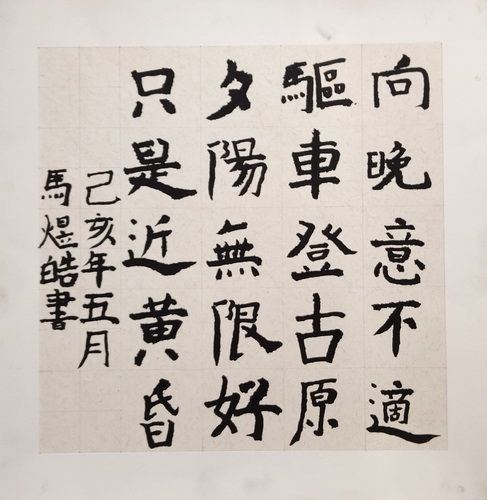 向晚意不適
驅車登古原
夕陽無限好
只是近黄昏
己亥年五月
馬煜皓書